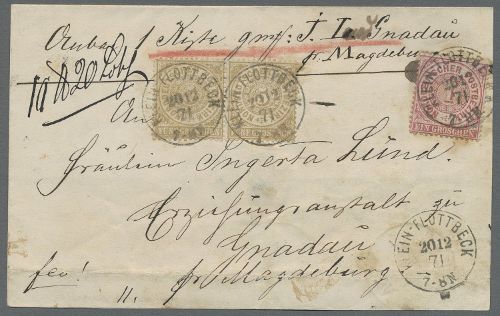 1 Kiste gmf: J. L. Gnadau
p. Magdebu
10 ℔ 20 Loth
KLEIN-FLOTTBECK
2012
71
7-8N
KLEIN-FLOTTBECK
2012
71
7-8N
KLEIN-FLOTTBECK
71
EIN GROSCHEN
An
Fräulein Ingerta Lund.
Erziehungsanstalt zu
Gnadau
p. Magdeburg
feo!
KLEIN-FLOTTBECK
2012
71
7-8N